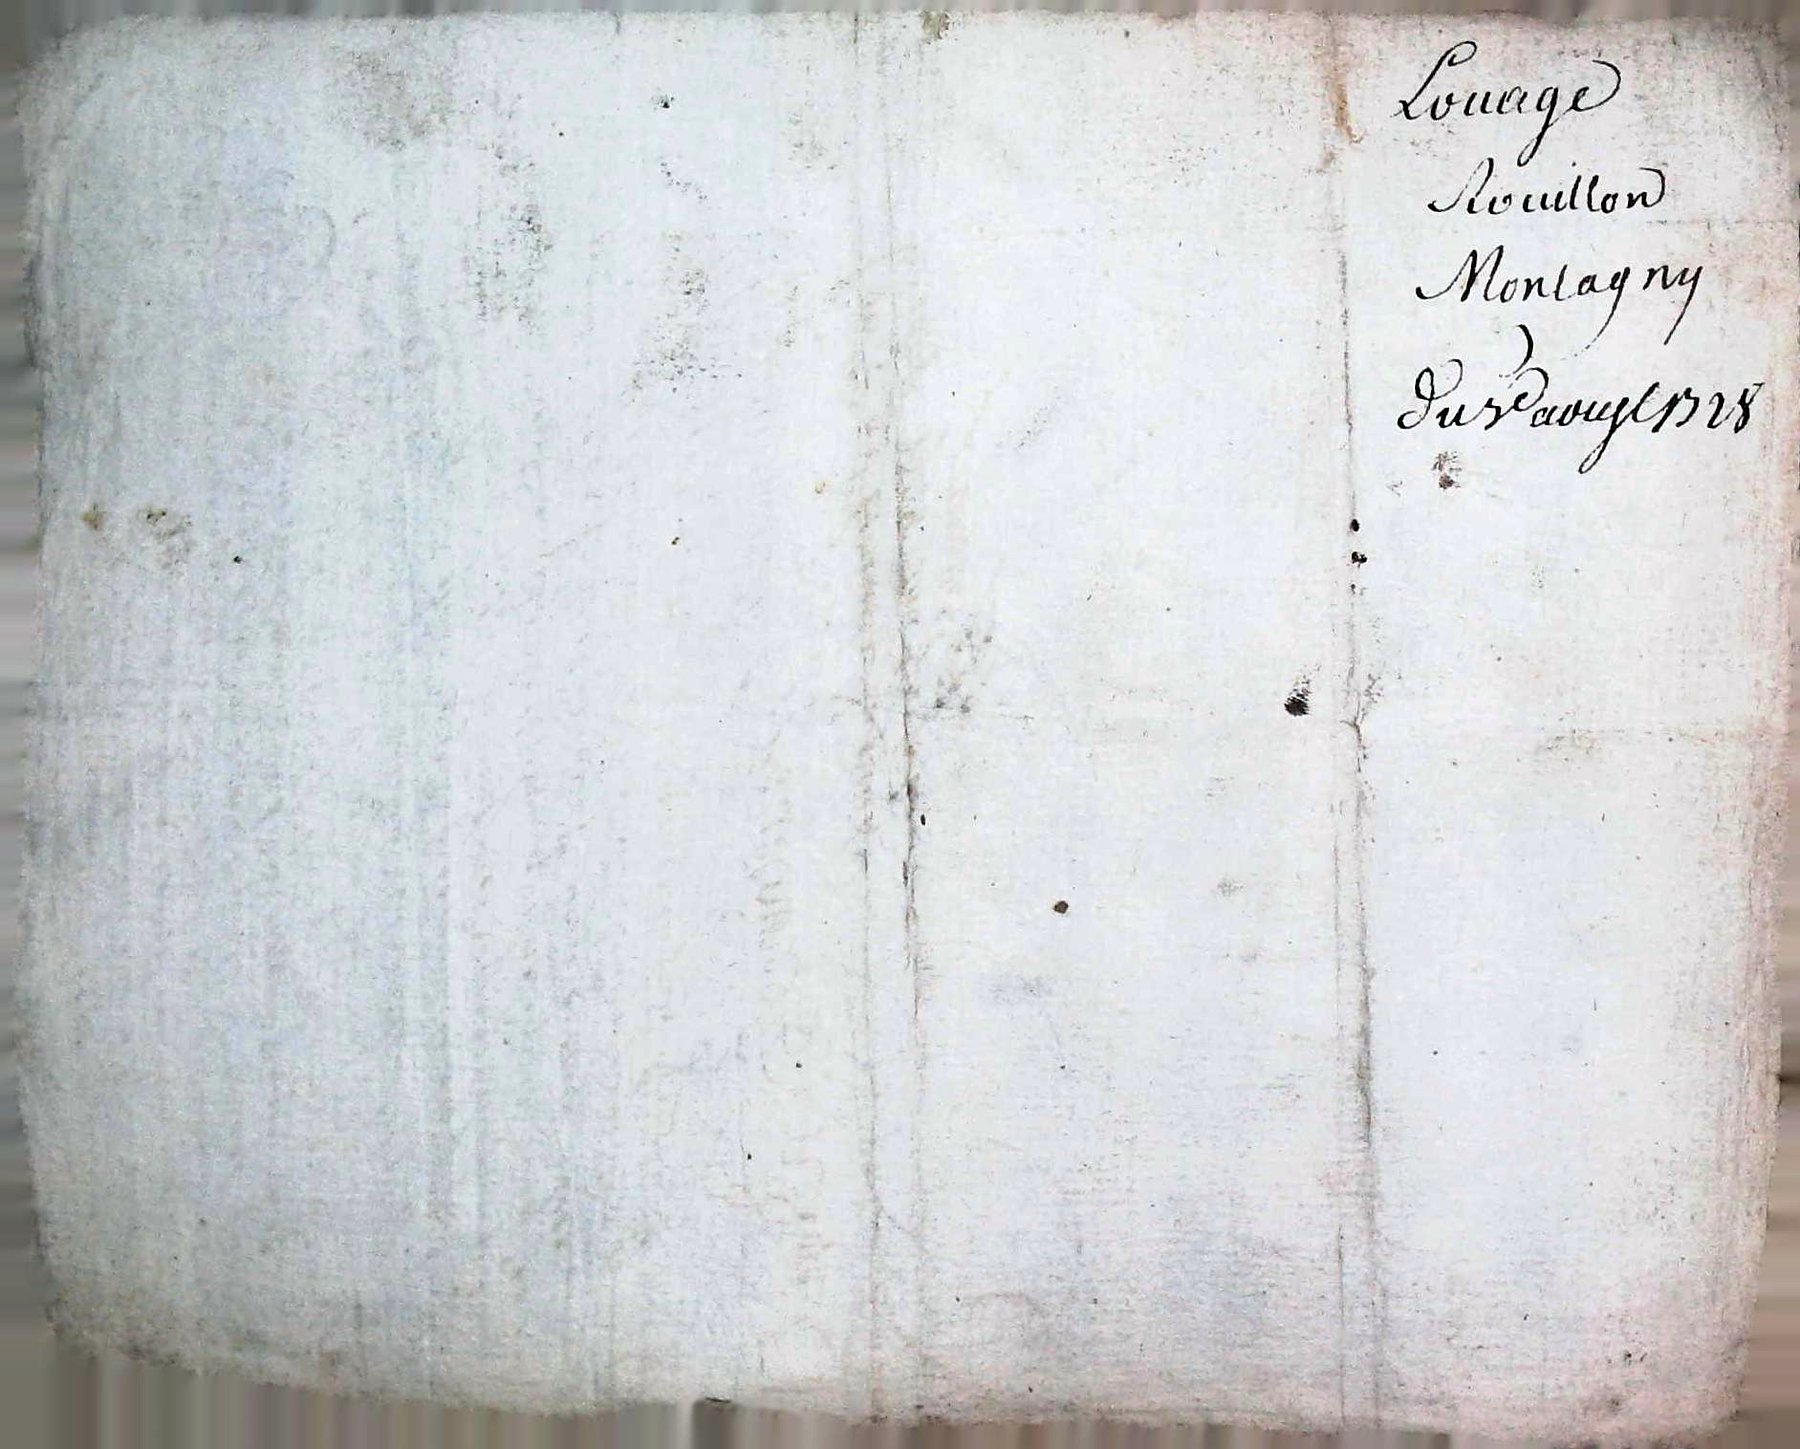 Louage
Rouillon
Montagny
du 5e aoust 1728